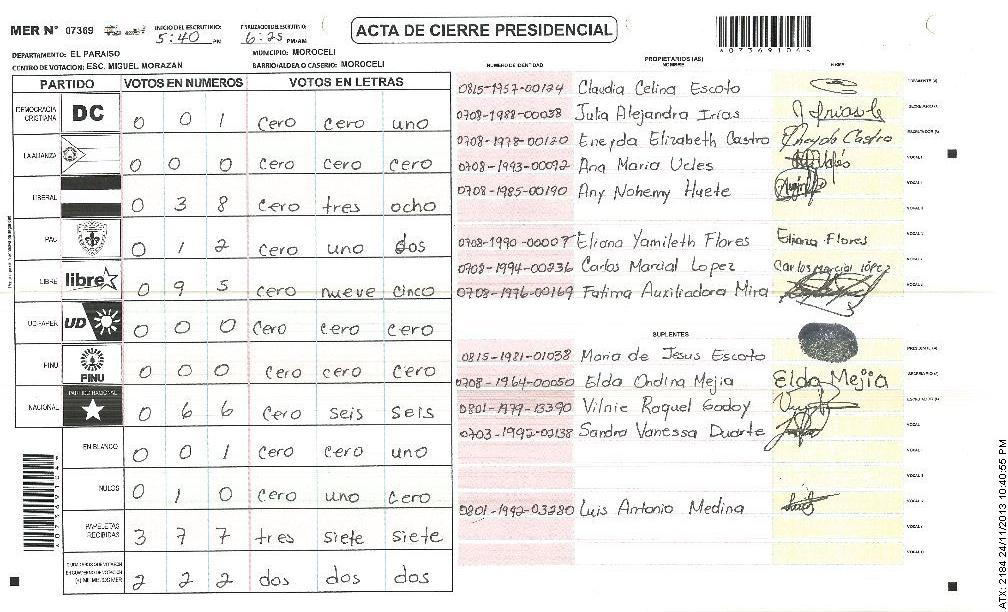 MER N° 07369
INICIO DEL ESCRUTINIO: 5:40 PM
FINALIZACION DEL ESCRUTINIO: 6:25 PM/AM
ACTA DE CIERRE PRESIDENCIAL
DEPARTAMENTO: EL PARAISO
MUNICIPIO: MOROCELI
CENTRO DE VOTACION: ESC. MIGUEL MORAZAN
BARRIO/ALDEA O CASERIO: MOROCELI
PARTIDO VOTOS EN NUMEROS VOTOS EN LETRAS
DEMOCRACIA CRISTIANA DC 0 0 1 cero cero uno
LA ALIANZA 0 0 0 cero cero cero
LIBERAL 0 3 8 cero tres ocho
PAC 0 1 2 cero uno dos
LIBRE libre 0 9 5 cero nueve cinco
UD-FAPER UD 0 0 0 cero cero cero
PINU PINU 0 0 0 cero cero cero
NACIONAL PARTIDO NACIONAL 0 6 6 cero seis seis
EN BLANCO 0 0 1 cero cero uno
NULOS 0 1 0 cero uno cero
PAPELETAS RECIBIDAS 3 7 7 tres siete siete
2 2 2 dos dos dos
PROPIETARIOS (AS)
NUMERO DE IDENTIDAD NOMBRE FIRMA
0815-1957-00124 Claudia Celina Escoto
0708-1988-00038 Julia Alejandra Irías
0708-1978-00120 Eneyda Elizabeth Castro Eneyda Castro
0708-1993-00092 Ana Maria Ucles
0708-1985-00190 Any Nohemy Huete
0708-1990-00007 Eliana Yamileth Flores Eliana Flores
0708-1994-00236 Carlos Marcial Lopez Carlos Marcial lópez
0708-1976-00169 Fatima Auxiliadora Mira
SUPLENTES
0815-1981-01038 Maria de Jesus Escoto
0708-1964-00050 Elda Ondina Mejia Elda Mejia
0801-1979-13390 Vilnie Raquel Godoy
0703-1992-02138 Sandra Vanessa Duarte
0801-1992-03280 Luis Antonio Medina
ATX: 2184 24/11/2013 10:40:55 PM